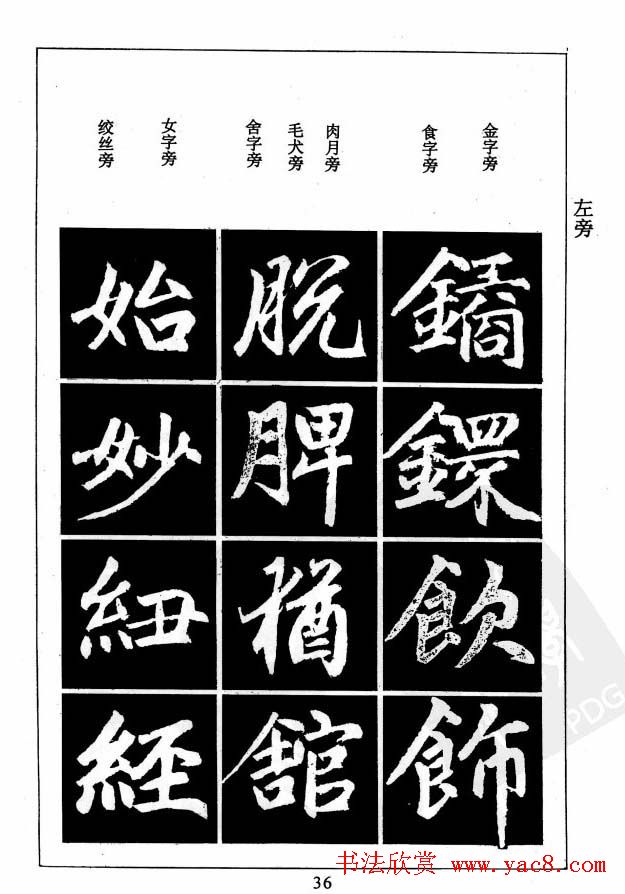 左旁
金字旁
食字旁
肉月旁
毛犬旁
舍字旁
女字旁
绞丝旁
鐍鐶飲飾
脱脾猶舘
始妙紐經
PDG
书法欣赏 www.yac8.com
36